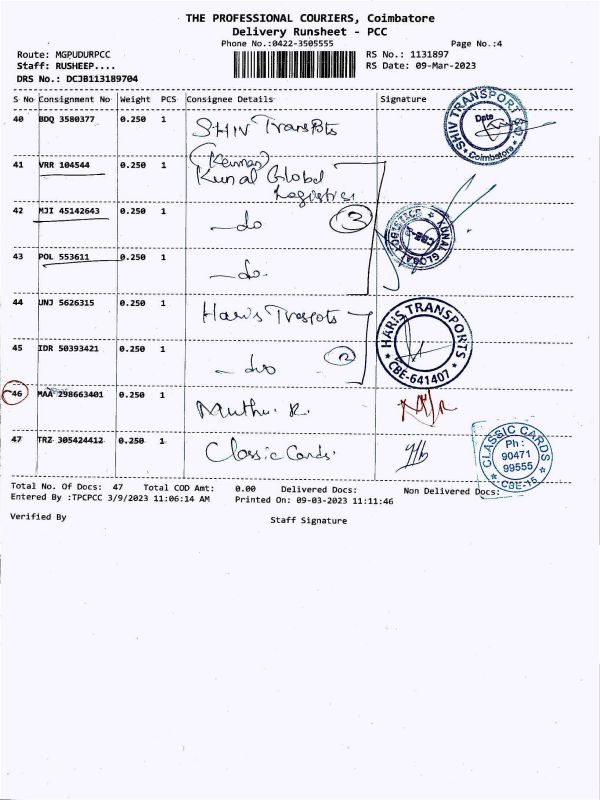 THE PROFESSIONAL COURIERS, Coimbatore
Delivery Runsheet - PCC
Phone No.:0422-3505555 Page No.:4
Route: MGPUDURPCC RS No.: 1131897
Staff: RUSHEEP.... RS Date: 09-Mar-2023
DRS No.: DCJB113189704
S No Consignment No Weight PCS Consignee Details Signature
40 BDQ 3580377 0.250 1 SHIV Transpots
SHIV TRANSPORT CO. Date Coimbatore
(Kannan)
41 VRR 104544 0.250 1 Kunal Global
Logistics
42 MJI 45142643 0.250 1 -do 3
KUNAL GLOBAL LOGISTICS CBE
43 POL 553611 0.250 1 -do.
44 UNJ 5626315 0.250 1 Haris Traspots
HARIS TRANSPORTS CBE-641407
45 IDR 50393421 0.250 1 -do 2
46 MAA 298663401 0.250 1 Muthu. R.
47 TRZ 305424412 0.250 1 Classic Cards.
CLASSIC CARDS Ph: 90471 99555 CBE-15
Total No. Of Docs: 47 Total COD Amt: 0.00 Delivered Docs: Non Delivered Docs:
Entered By :TPCPCC 3/9/2023 11:06:14 AM Printed On: 09-03-2023 11:11:46
Verified By Staff Signature